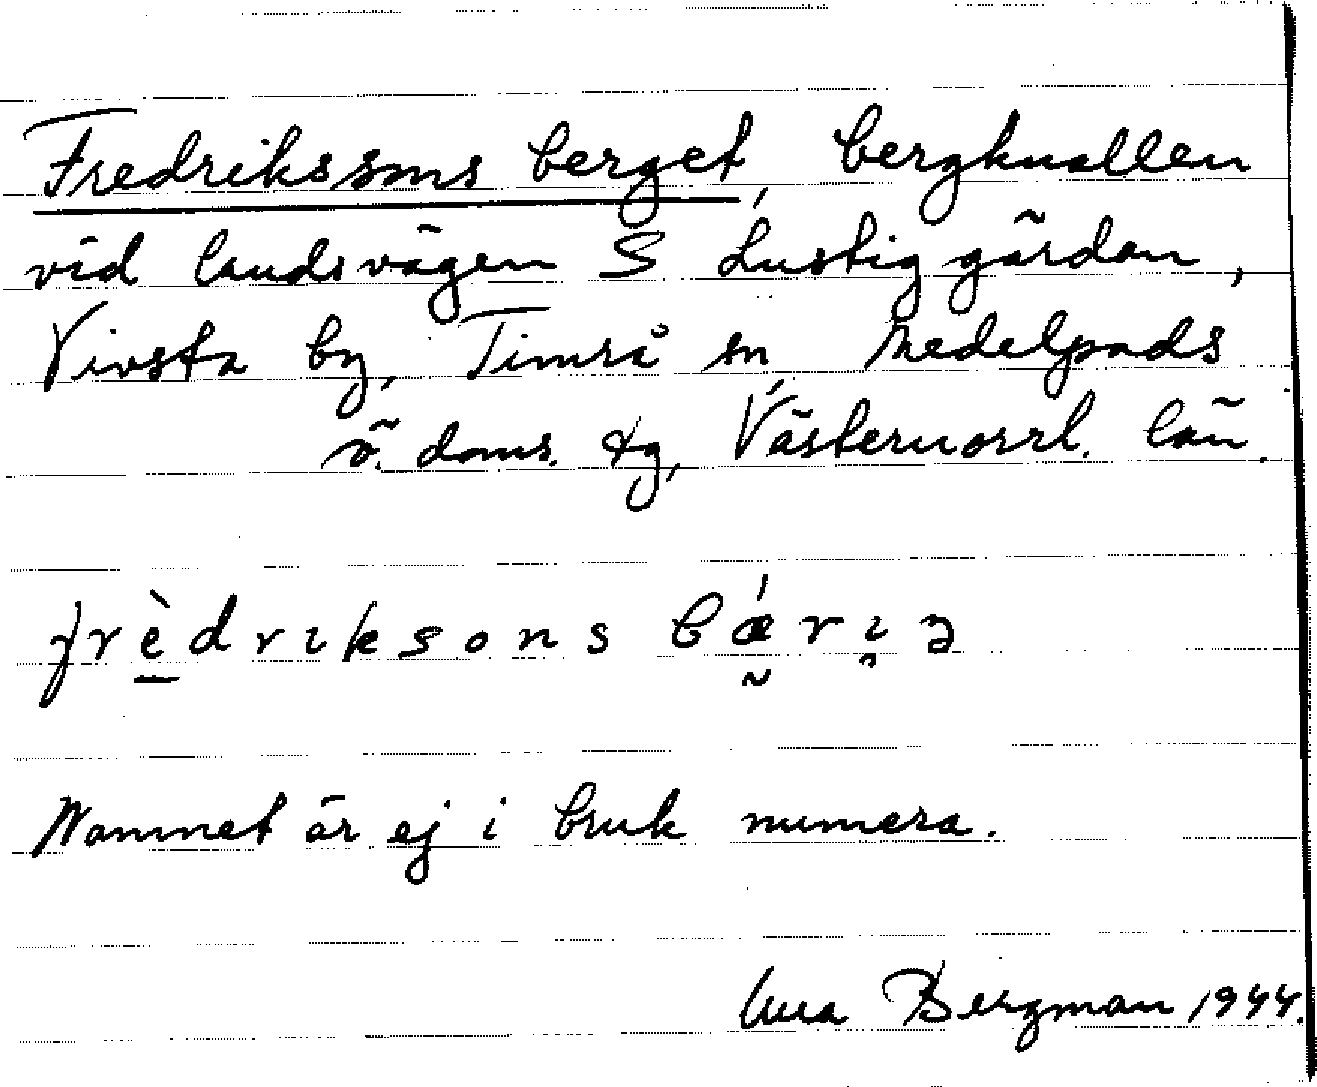 Fredrikssons berget, bergknallen
vid landsvägen S Lustiggården,
Vivsta by, Timrå sn, Medelpads
ö. doms. tg, Västernorrl. län.
frèdriksons bǽri̥ə
Namnet är ej i bruk numera.
Bergman 1944.